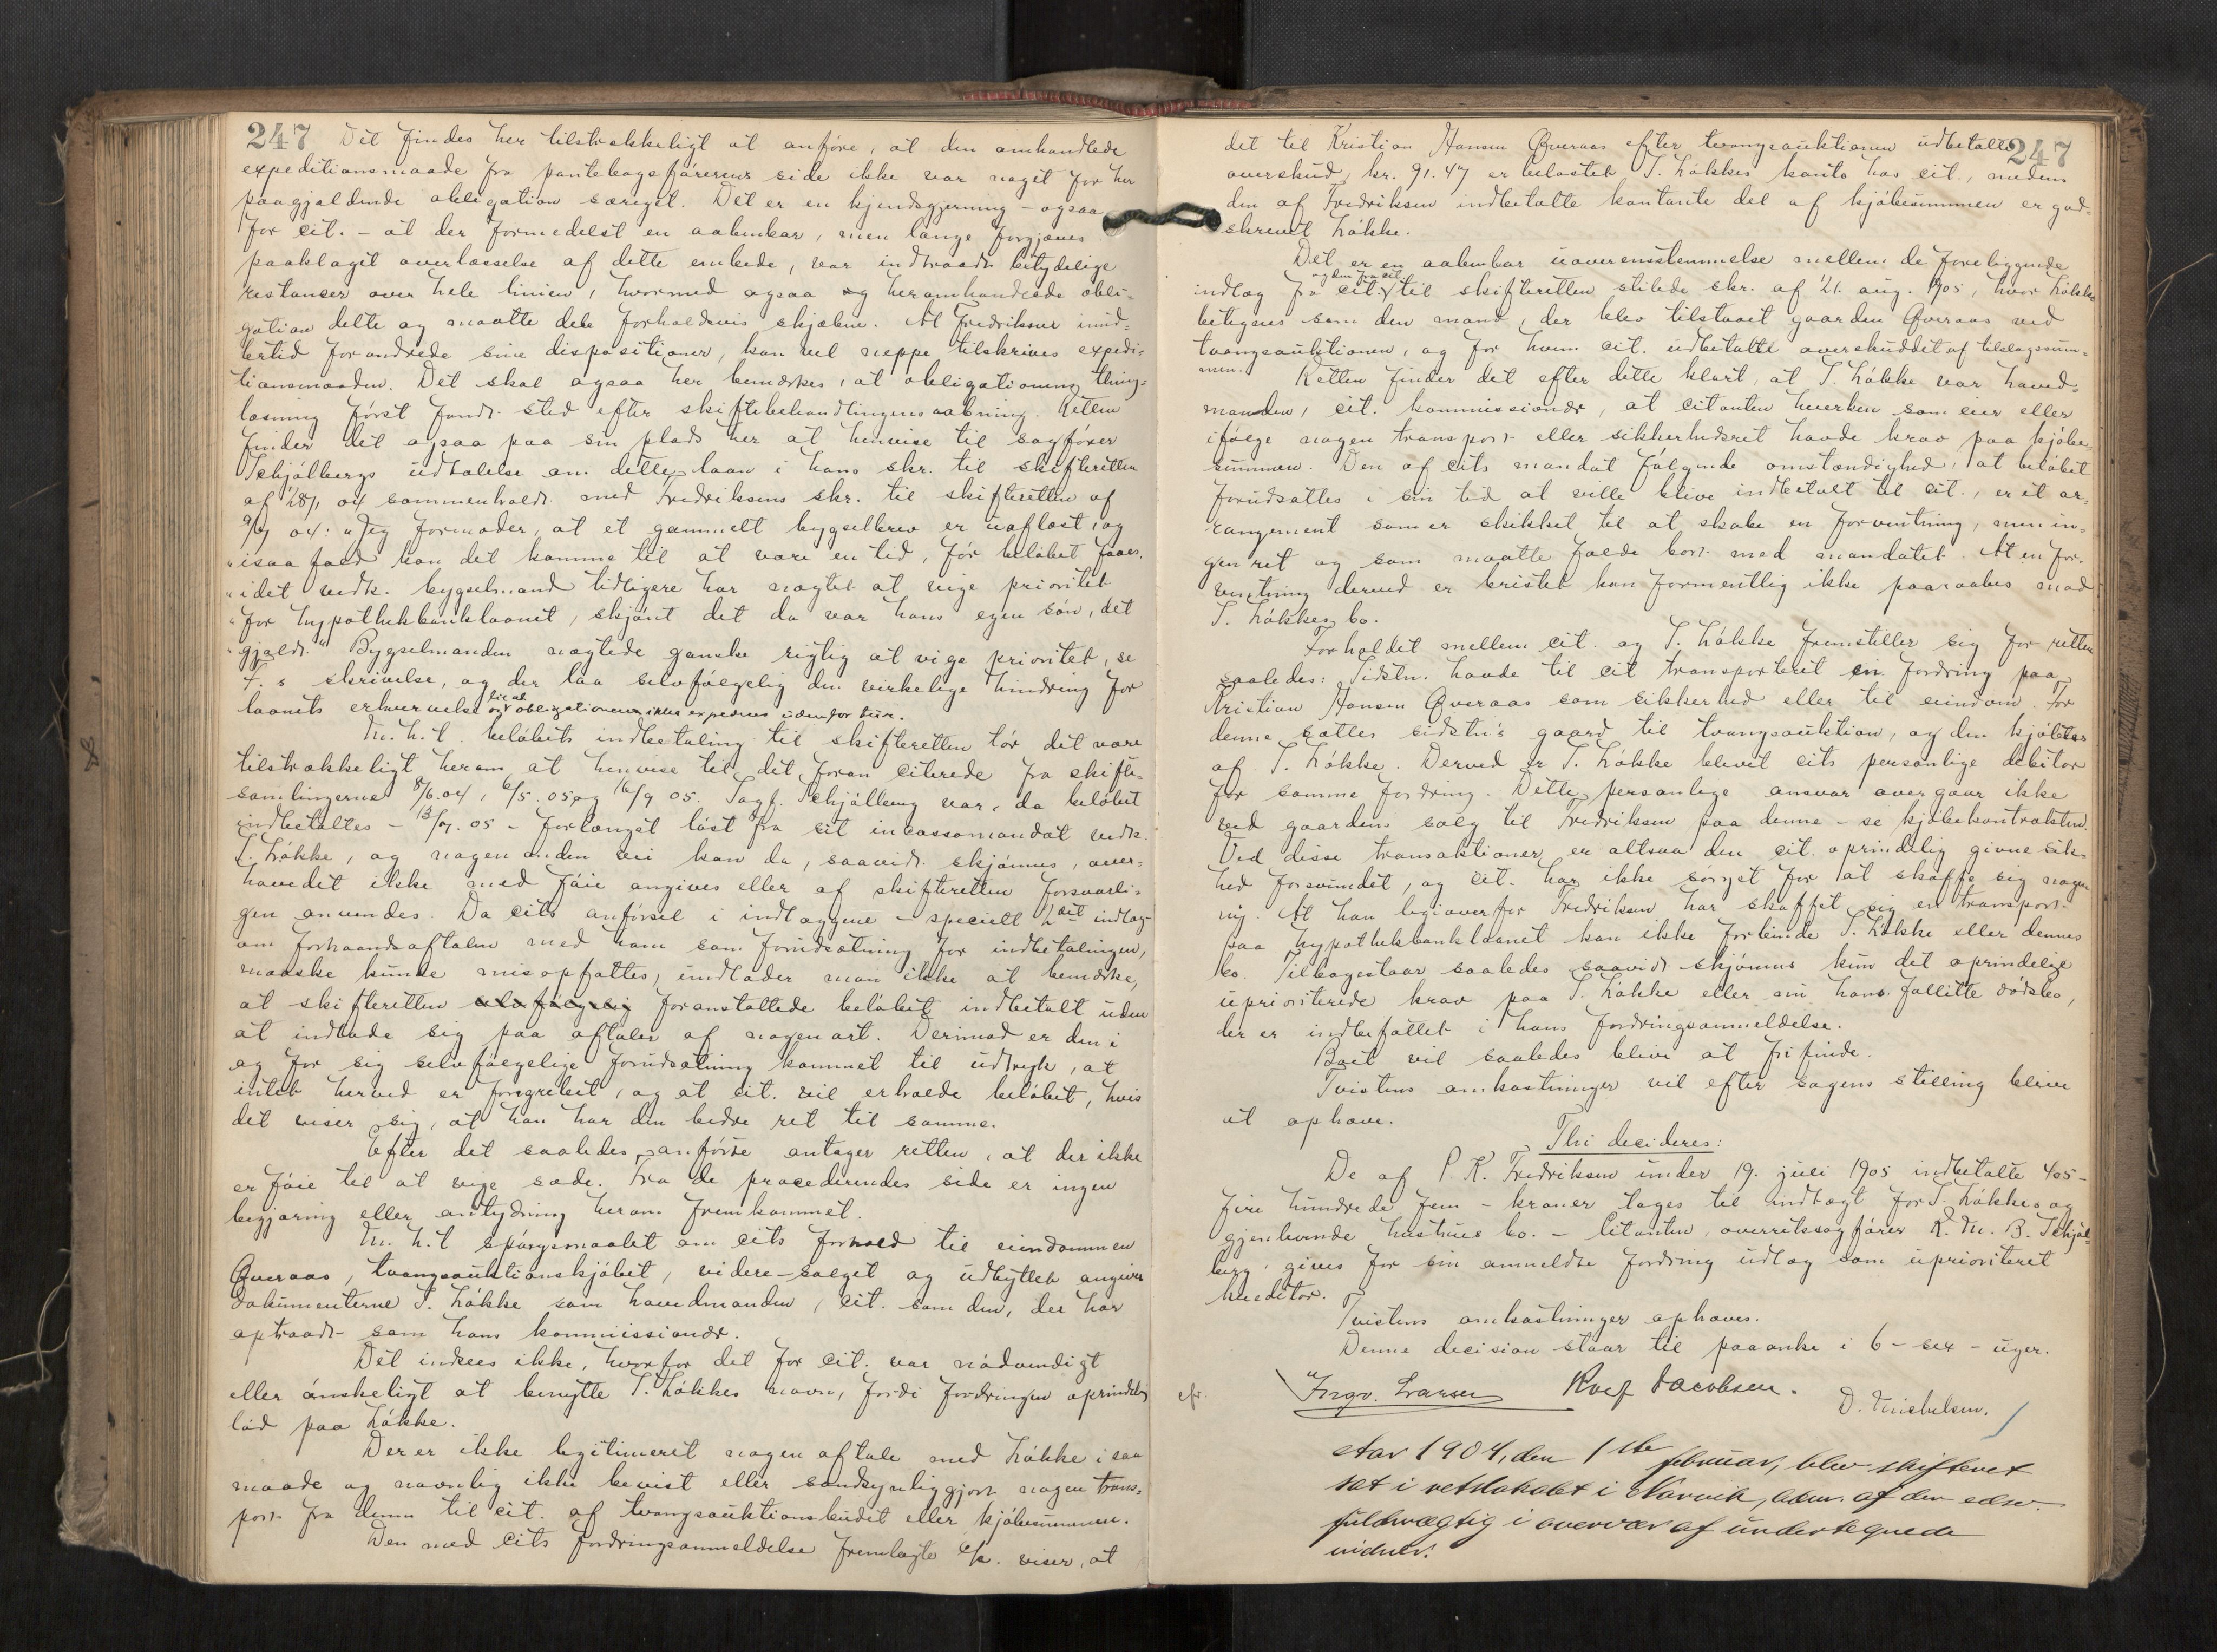 247 Det findes her tilstrækkeligt at anføre, at den omhandlede
expeditionsmaade fra pantebogsførerens side ikke var noget for her
paagjældende obligation særeget. Det er en kjendsgjerning – ogsaa
for cit. – at der formedelst en aabenbar, men længe forgjæves
paaklaget overlæsselse af dette embede, var indtraadt betydelige
restancer over hele linien, hvormed ogsaa heromhandlede obli-
gation delte og maatte dele forholdsvis skjæbne. At Fredriksen imid-
lertid forandrede sine dispositioner, kan vel neppe tilskrives expedi-
tionsmaaden. Det skal ogsaa her bemærkes, at obligationens thing-
læsning først fandt sted efter skiftebehandlingens aabning. Retten
finder det ogsaa paa sin plads her at henvise til sagfører
Schjølbergs udtalelse om dette laan i hans skr. til skifteretten
af 28/1 04 sammenholdt med Fredriksens skr. til skifteretten af
9/1 04: "Jeg formoder, at et gammelt bygselbrev er uaflæst, og
"isaafald kan det komme til at vare en tid, før beløbet faaes,
"idet vedk. bygselmand tidligere har nægtet at vige prioritet
"for hypothekbanklaanet, skjønt det da var hans egen søn, det
"gjaldt." Bygselmanden nægtede ganske rigtig at vige prioritet, se
F.s skrivelse, og der laa selvfølgelig den virkelige hindring for
laanets erhvervelse og til at obligationen ikke expederes udenfor tur.
M.h.t. beløbets indbetaling til skifteretten tør det være
tilstrækkeligt herom at henvise til det foran citerede fra skifte-
samlingerne 8/6.04, 6/5.05 og 16/9 05. Sagf. Schjølberg var, da beløbet
indbetaltes – 13/7.05 – forlængst løst fra sit incassomandat vedk.
T. Løkke, og nogen anden vei kan da, saavidt skjønnes, over-
hovedet ikke med føie angives eller af skifteretten forsvarli-
gen anvendes. Da cits anførsel i indlæggene – specielt 2det indlæg
om forhaandsaftalen med ham som forudsætning for indbetalingen,
maaske kunde misopfattes, undlader man ikke at bemærke,
at skifteretten selvfølgelig foranstaltede beløbet indbetalt uden
at indlade sig paa aftaler af nogen art. Derimod er den i
og for sig selvfølgelige forudsætning kommet til udtryk, at
intet herved er foregrebet, og at cit. vil erholde beløbet, hvis
det viser sig, at han har den bedre ret til samme.
Efter det saaledes anførte antager retten, at der ikke
er føie til at vige sæde. Fra de procederendes side er ingen
begjæring eller antydning herom fremkommet.
M.h.t. spørgsmaalet om cits forhold til eiendommen
Øveraas, tvangsauktionskjøbet, videre-salget og udbyttet angiver
dokumenterne T. Løkke som hovedmanden, cit. som den, der har
optraadt som hans kommissionær.
Det indsees ikke, hvorfor det for cit. var nødvendigt
eller ønskeligt at benytte T. Løkkes navn, fordi fordringen oprindelig
lød paa Løkke.
Der er ikke legitimeret nogen aftale med Løkke i saa
maade og navnlig ikke bevist eller sandsynliggjort nogen trans-
port fra denne til cit. af tvangsauktionsbudet eller kjøbesummen.
Den med cits fordringsanmeldelse fremlagte c/c. viser, at
247
det til Kristian Hansen Øveraas efter tvangsauktionen udbetalte
overskud, kr. 91.47 er belastet T. Løkkes konto hos cit., medens
den af Fredriksen indbetalte kontante del af kjøbesummen er god-
skrevet Løkke.
Det er en aabenbar uoverensstemmelse mellem de foreliggende
indlæg fra cit. og den fra cit. til skifteretten stilede skr. af 21. aug. 1905, hvor Løkke
betegnes som den mand, der blev tilstaaet gaarden Øveraas ved
tvangsauktionen, og for hvem cit. udbetalte overskuddet af tilslagssum-
men.
Retten finder det efter dette klart, at T. Løkke var hoved-
manden, cit. kommissionær, at citanten hverken som eier eller
ifølge nogen transport eller sikkerhedsret havde krav paa kjøbe-
summen. Den af cits mandat følgende omstændighed, at beløbet
forudsattes i sin tid at ville blive indbetalt til cit., er et ar-
rangement som er skikket til at skabe en forventning, men in-
gen ret og som maatte falde bort med mandatet. At en for-
ventning derved er bristet kan formentlig ikke paaraabes mod
T. Løkkes bo.
Forholdet mellem cit. og T. Løkke fremstiller sig for retten
saaledes: Sidstn. havde til cit transporteret en fordring paa
Kristian Hansen Øveraas som sikkerhed eller til eiendom. For
denne sattes sidstn's gaard til tvangsauktion, og den kjøbtes
af T. Løkke. Derved er T. Løkke blevet cits personlige debitor
for samme fordring. Dette personlige ansvar overgaar ikke
ved gaardens salg til Fredriksen paa denne – se kjøbekontrakten.
Ved disse transaktioner er altsaa den cit. oprindelig givne sik-
hed forsvundet, og cit. har ikke sørget for at skaffe sig nogen
ny. At han ligeoverfor Fredriksen har skaffet sig en transport
paa hypothekbanklaanet kan ikke forbinde T. Løkke eller dennes
bo. Tilbagestaar saaledes saavidt skjønnes kun det oprindelige
uprioriterede krav paa T. Løkke eller nu hans fallitte dødsbo,
der er indbefattet i hans fordringsanmeldelse.
Boet vil saaledes blive at frifinde.
Tvistens omkostninger vil efter sagens stilling blive
at ophæve.
Thi decideres:
De af P. K. Fredriksen under 19. juli 1905 indbetalte 405 –
fire hundrede fem – kroner tages til indtægt for T. Løkkes og
gjenlevende hustrues bo. – Citanten, overretssagfører K. M. B. Schjøl-
berg, gives for sin anmeldte fordring udlæg som uprioriteret
kreditor.
Tvistens omkostninger ophæves.
Denne decision staar til paaanke i 6 – sex – uger.
Ingv. Larsen Rolf Jacobsen.
D. Michelsen.
Aar 1904, den 1ste februar, blev skifteret
sat i retslokalet i Narvik, adm. af den edsv.
fuldmægtig i overvær af undertegnede
vidner: